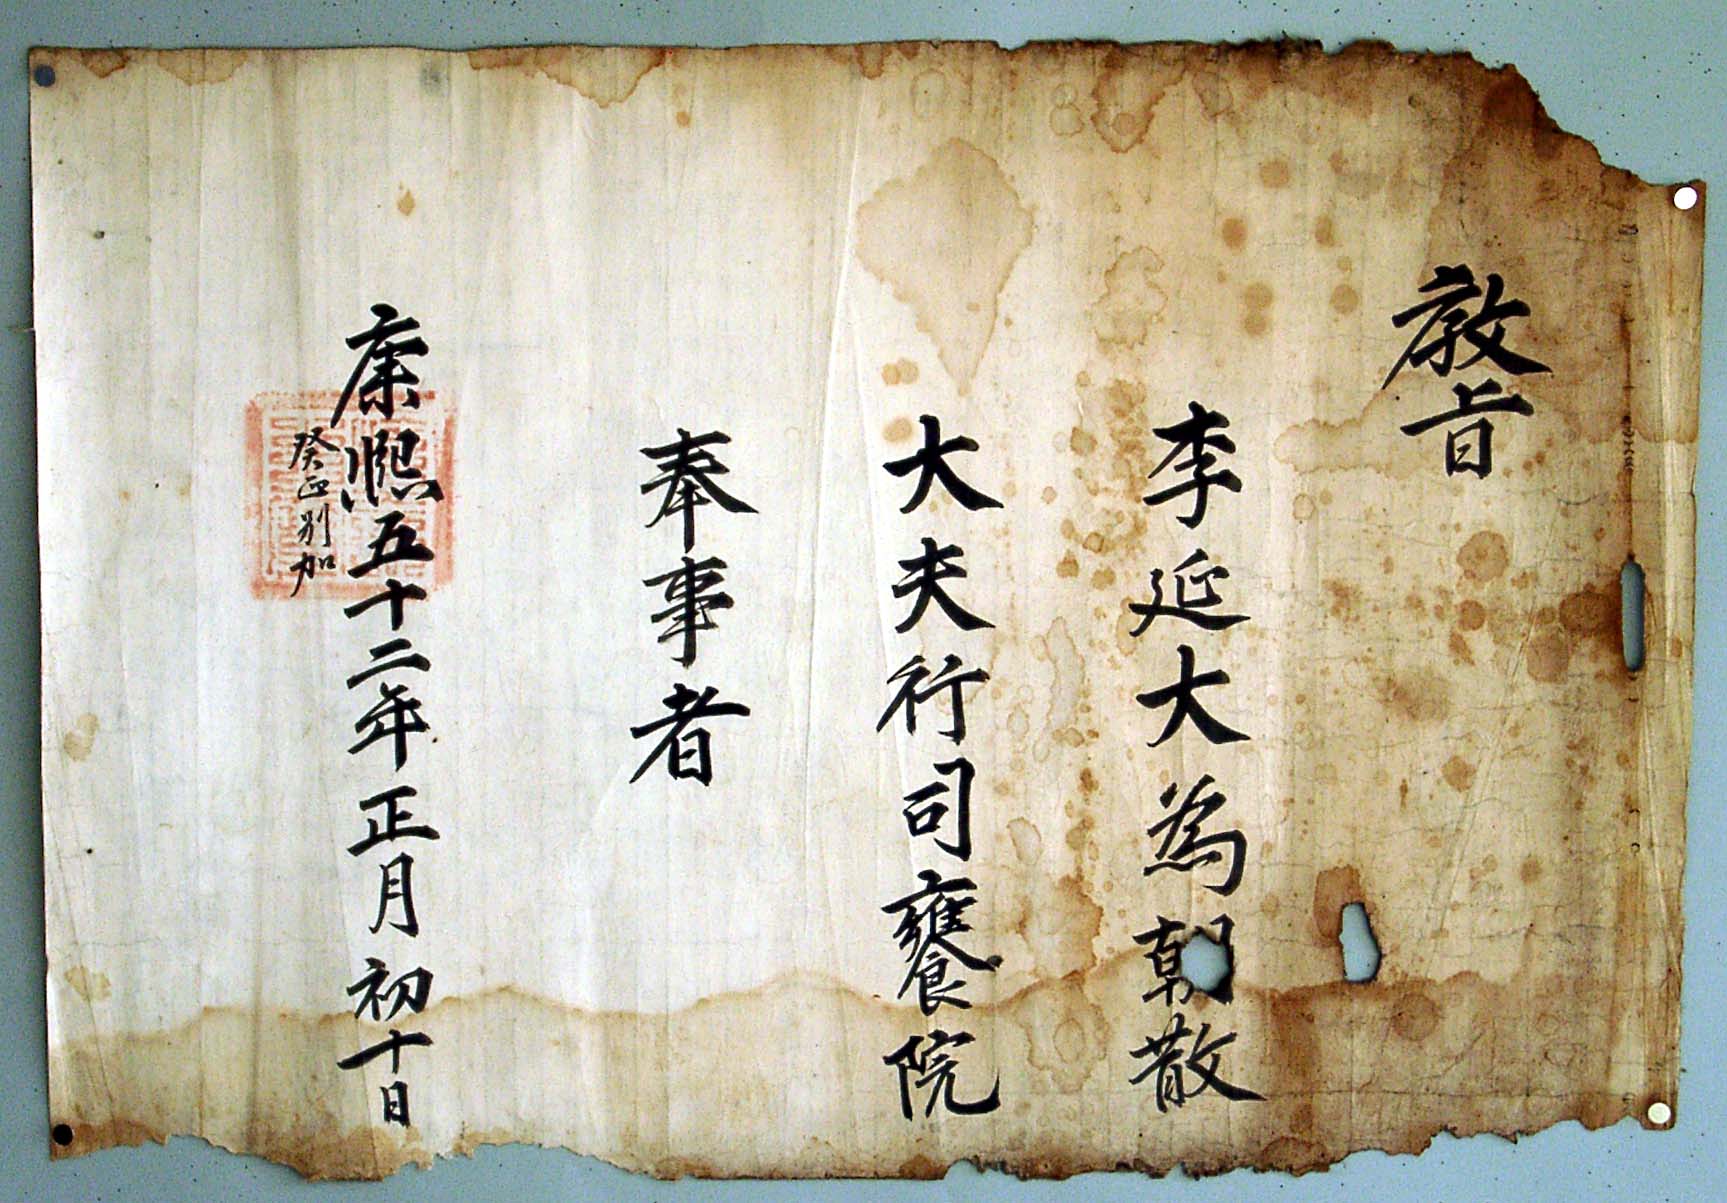 教旨
李延大為朝散
大夫行司饔院
奉事者
康熙五十二年正月初十日
癸正別加